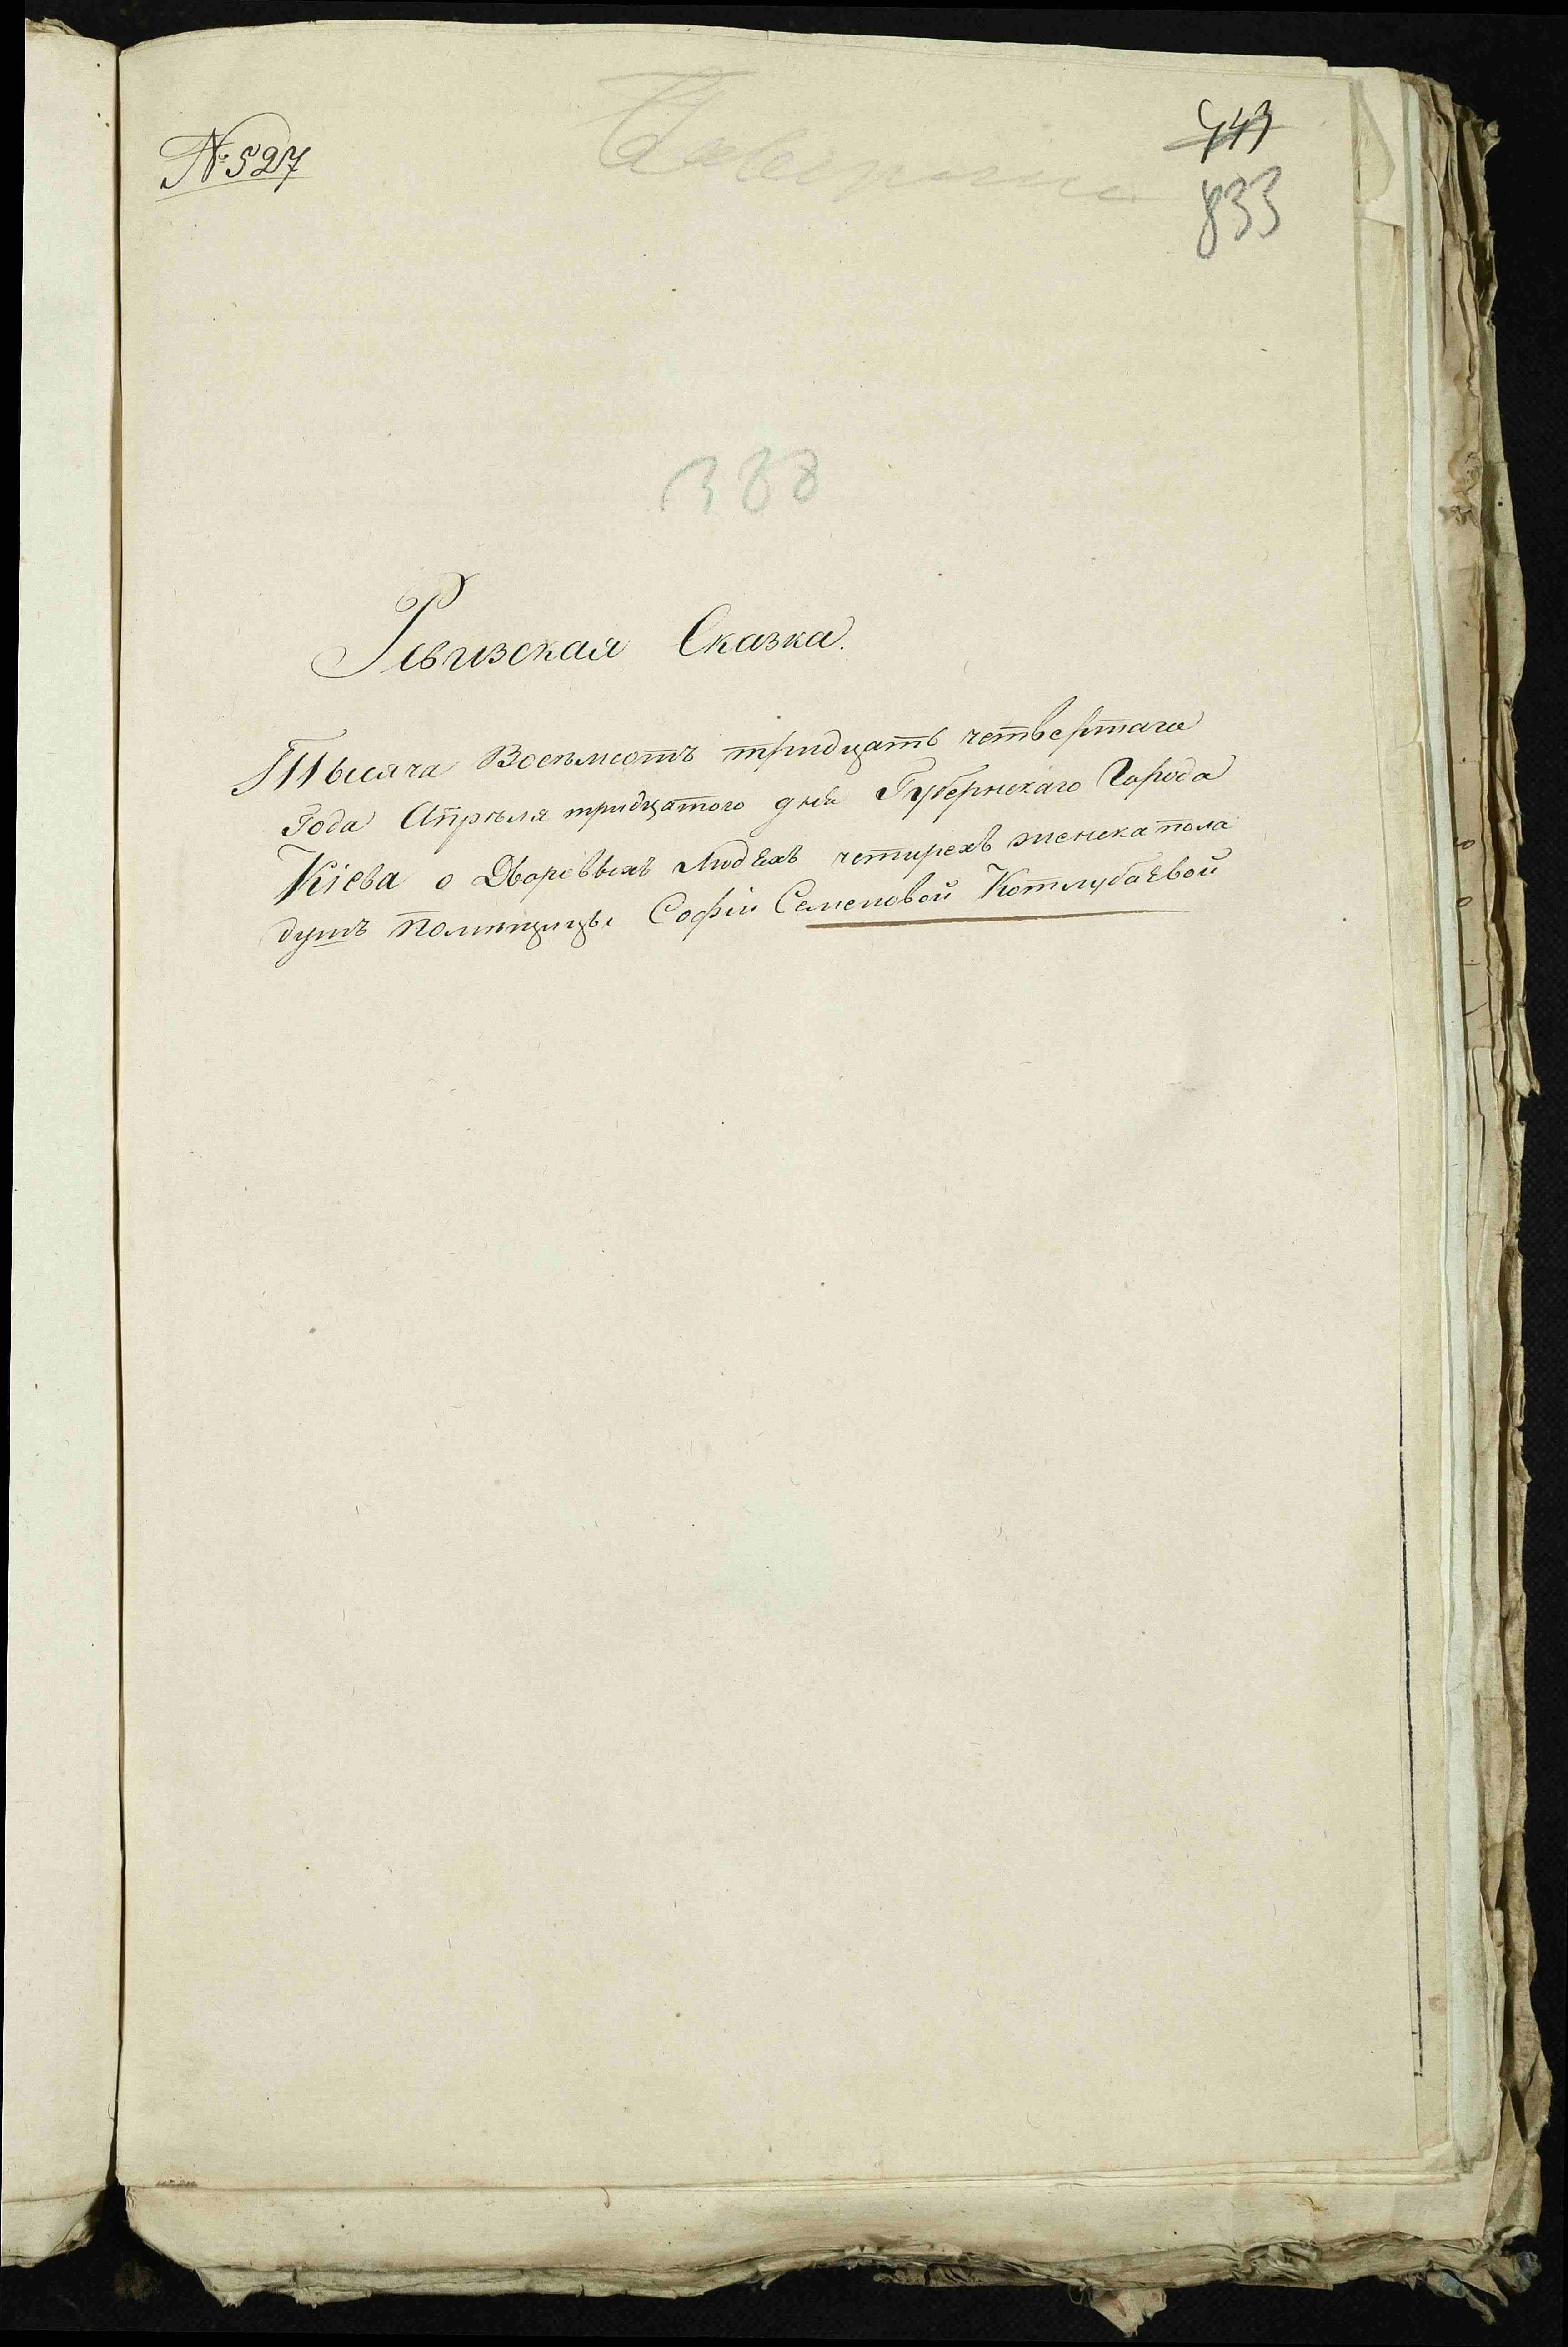 № 527
443
833
388
Ревизская Сказка.
Тысяча Восемсотъ тридцать четвертаго
Года Апреля тридцатого дня Губернскаго Города
Кіева о Дворовыхъ Людехъ четирехъ женска пола
душъ Помещицы Софіи Семеновой Котлубаевой